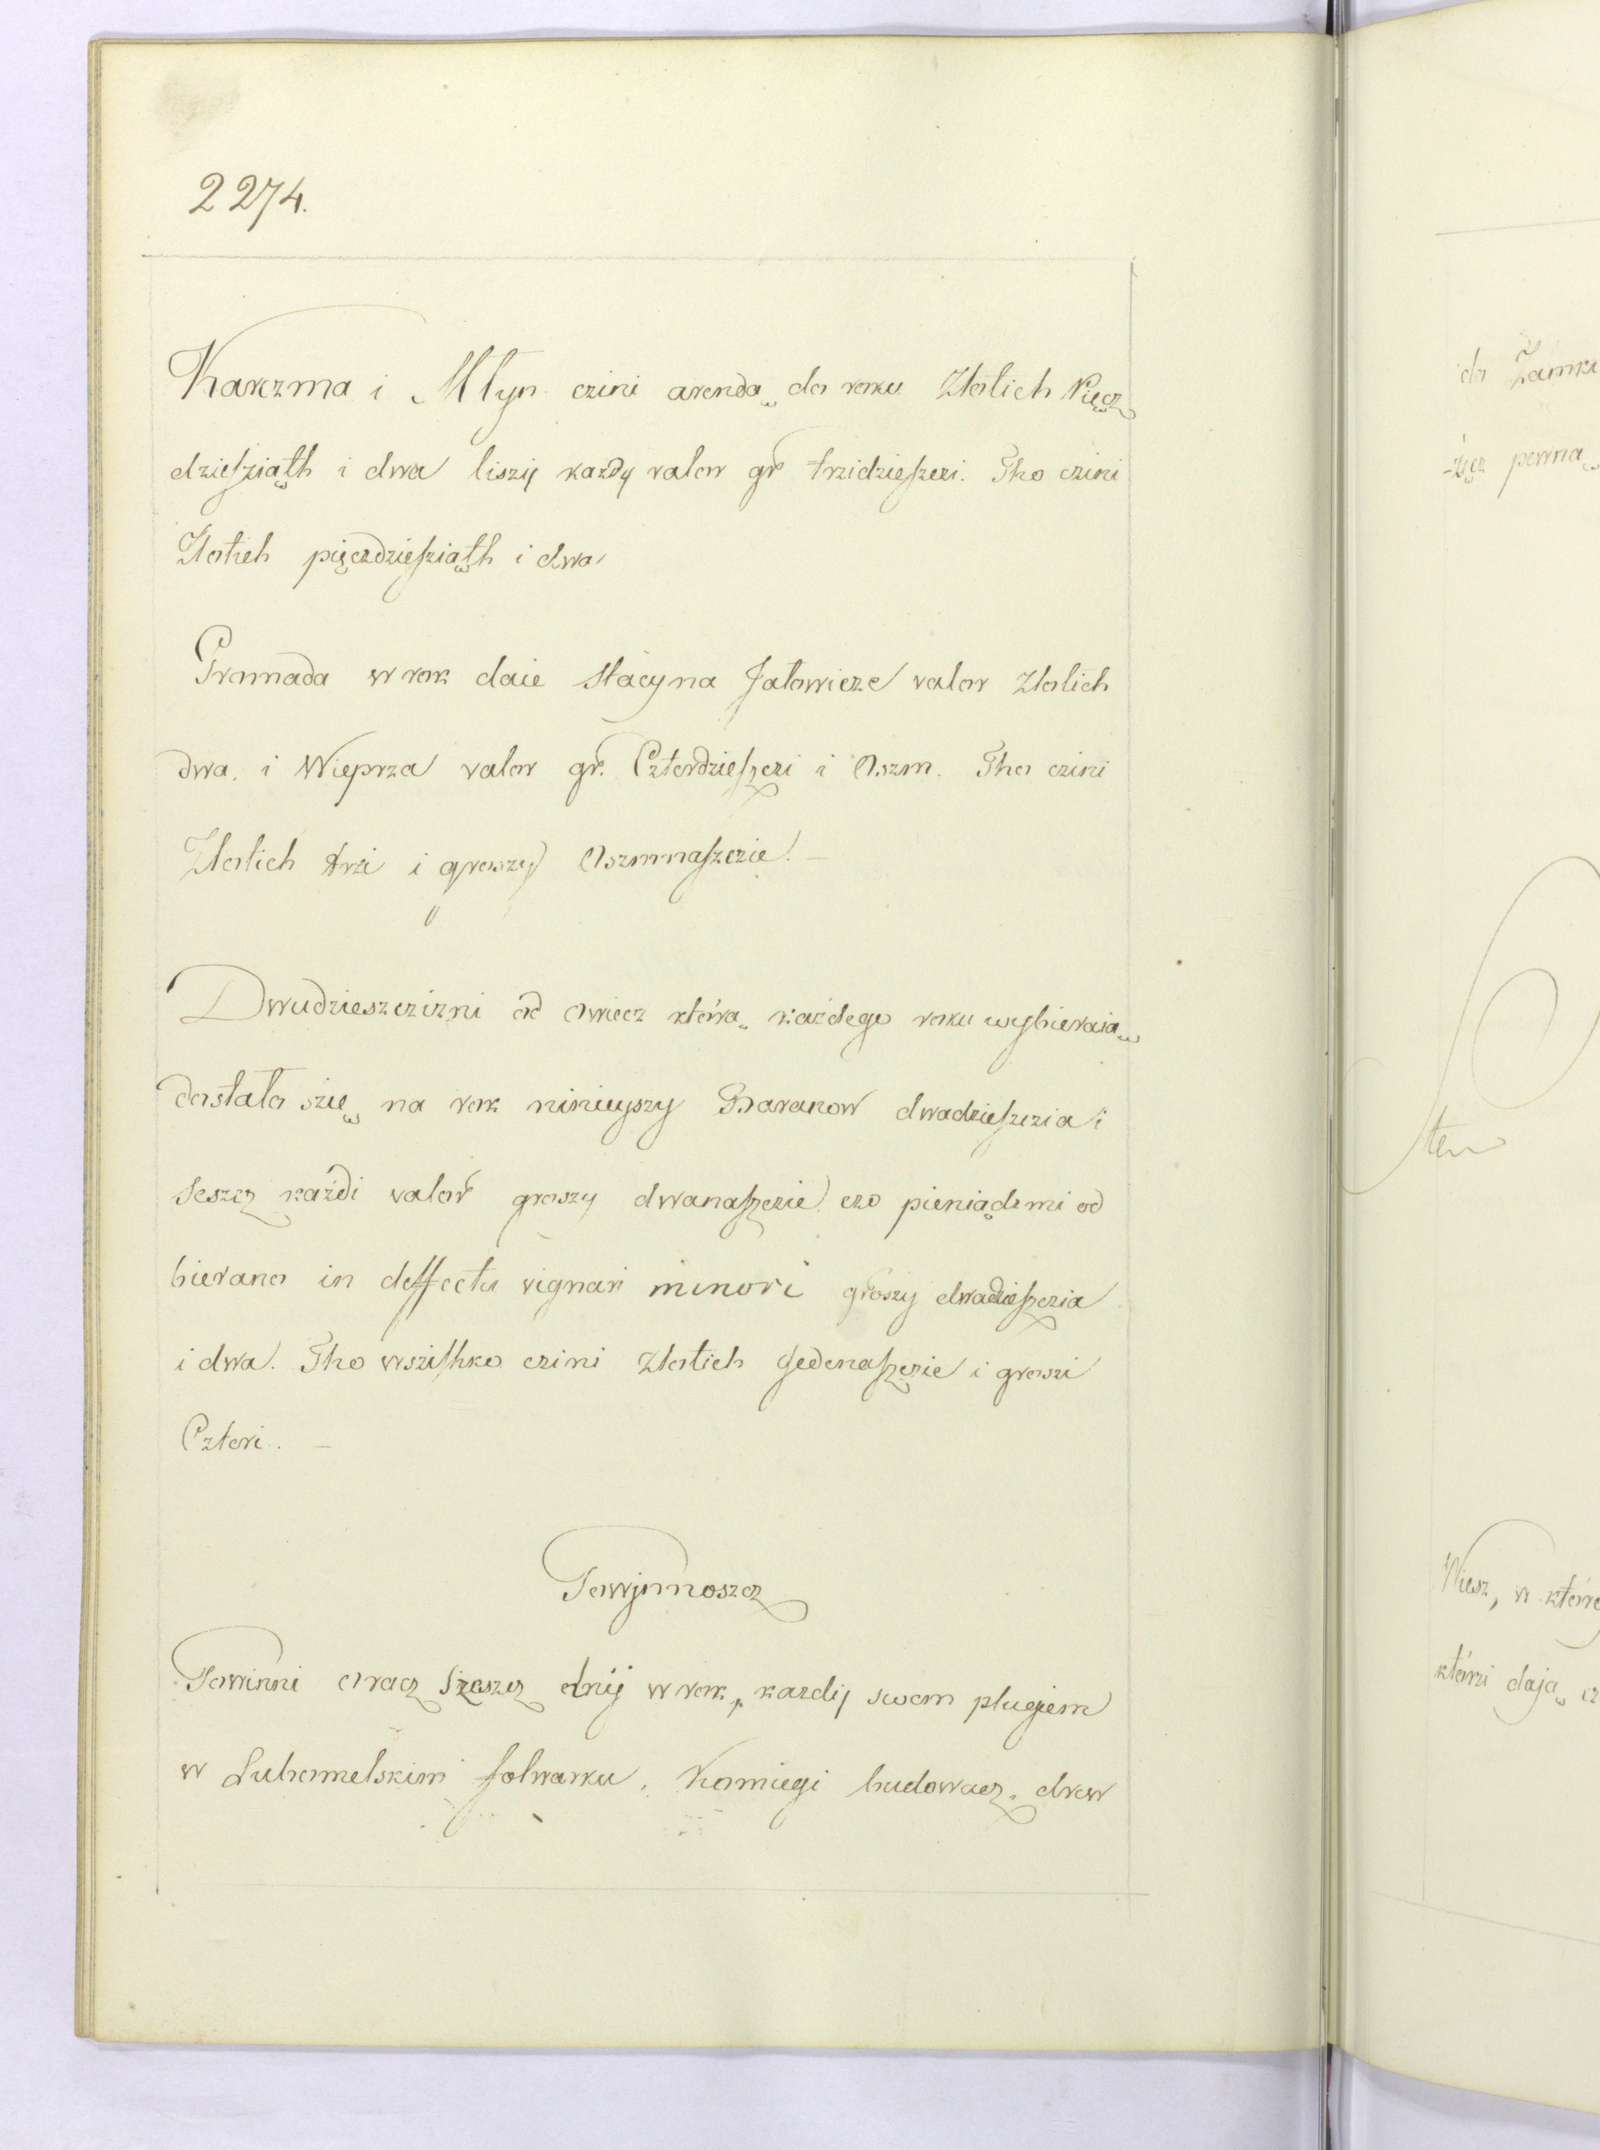 2274.
Karczma i Młyn czini arendą do roku Złotich Pięcz
dzieſziąth i dwa liszij każdy valor gr trzidzieſzczi. Tho czini
Złotich pięczdzieſziąth i dwa
Gromada w rok daie stacyna Jałowicze valor Złotich
dwa, i Wieprza valor gr. Czterdzieſzczi i Oszm. Tho czini
Złotich trzi i groszy Oszmnaſzczie. —
Dwudzieszczizni od owiecz którą każdego roku wybieraią
dostało szię na rok ninieyszy Baranow dwadzieſzczia i
seszcz każdi valor groszy dwanaſzczie czo pieniądzmi od
bierano in deffectu vignari minori groszy dwadzieſzczia
i dwa. Tho wszisthko czini Złotich Jedenaſzczie i groszi
Cztori. —
Powjnnoszcz
Powinni oracz szeszcz dnij w rok, każdij swem plugiem
w Lubomelskim folwarku, Komiegi budowacz, drew
do Zamku
pewną
ten
Wiesz, w które
którzi dają cz